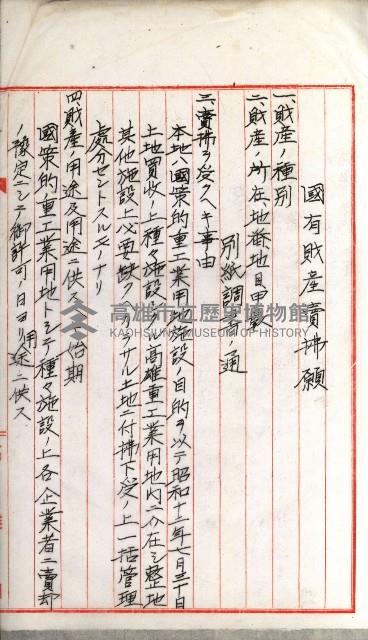 國有財産賣拂願
一、財産ノ種別
二、財産ノ所在地番地目甲數
別紙調書ノ通
三、賣拂ヲ受クヘキ事由
本地ハ國策的重工業用地施設ノ目的ヲ以テ昭和十二年七月三十日
土地買收ノ上種々施設シタル高雄重工業用地内ニ介在シ整地
其他施設上必要缺クヘカラサル土地ニ付拂下受ノ上一括管理
處分セントスルモノナリ
四、財産ノ用途及用途ニ供スヘキ始期
國策的重工業用地トシテ種々施設ノ上各企業者ニ賣却
ノ豫定ニシテ御許可ノ日ヨリ用途ニ供ス
高雄市立歷史博物館
KAOHSIUNG MUSEUM OF HISTORY